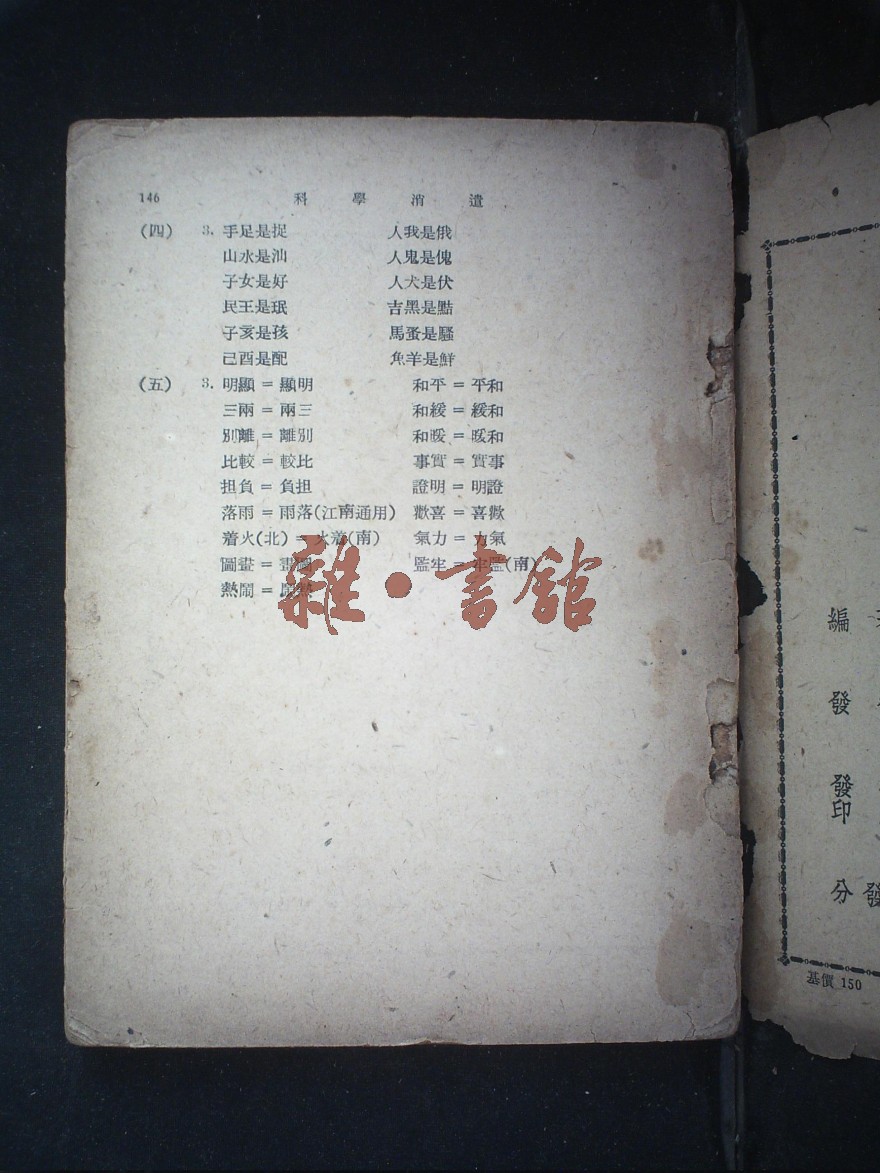 146 科學消遣
(四) 3. 手足是捉 人我是俄
山水是汕 人鬼是傀
子女是好 人犬是伏
民王是珉 吉黑是黠
子亥是孩 馬蚤是騷
己酉是配 魚羊是鮮
(五) 3. 明顯 = 顯明 和平 = 平和
三兩 = 兩三 和緩 = 緩和
別離 = 離別 和暖 = 暖和
比較 = 較比 事實 = 實事
担負 = 負担 證明 = 明證
落雨 = 雨落(江南通用) 歡喜 = 喜歡
着火(北) = 火着(南) 氣力 = 力氣
圖畫 = 畫圖 監牢 = 牢監(南)
熱鬧 = 鬧熱
雜·書館
編
發
發印
分 發
基價 150